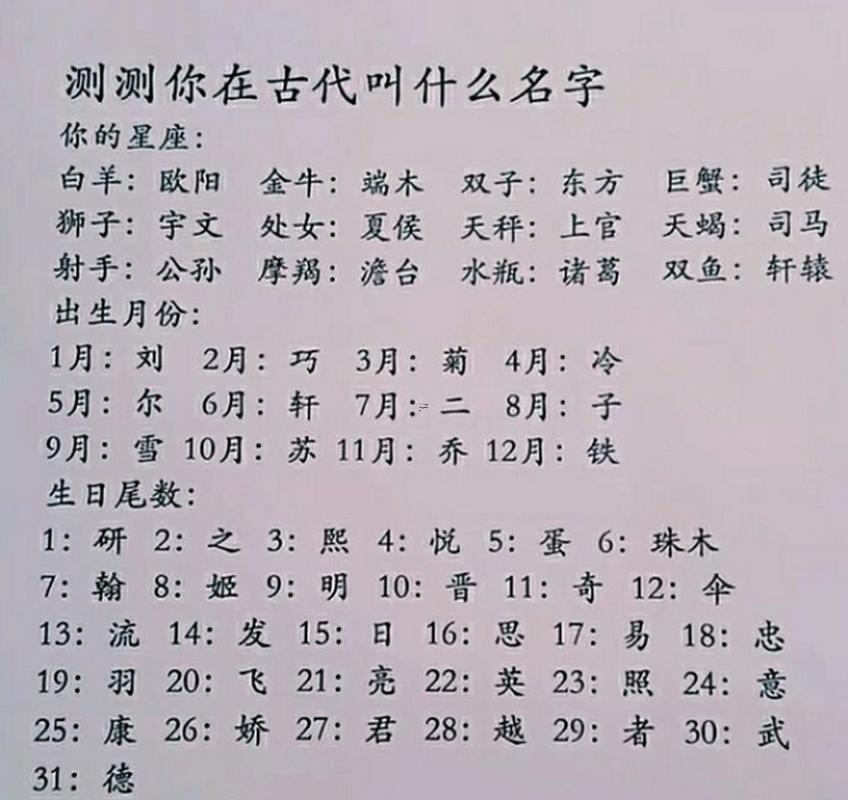 测测你在古代叫什么名字
你的星座：
白羊：欧阳 金牛：端木 双子：东方 巨蟹：司徒
狮子：宇文 处女：夏侯 天秤：上官 天蝎：司马
射手：公孙 摩羯：澹台 水瓶：诸葛 双鱼：轩辕
出生月份：
1月：刘 2月：巧 3月：菊 4月：冷
5月：尔 6月：轩 7月：二 8月：子
9月：雪 10月：苏 11月：乔 12月：铁
生日尾数：
1：研 2：之 3：熙 4：悦 5：蛋 6：珠木
7：翰 8：姬 9：明 10：晋 11：奇 12：伞
13：流 14：发 15：日 16：思 17：易 18：忠
19：羽 20：飞 21：亮 22：英 23：照 24：意
25：康 26：娇 27：君 28：越 29：者 30：武
31：德